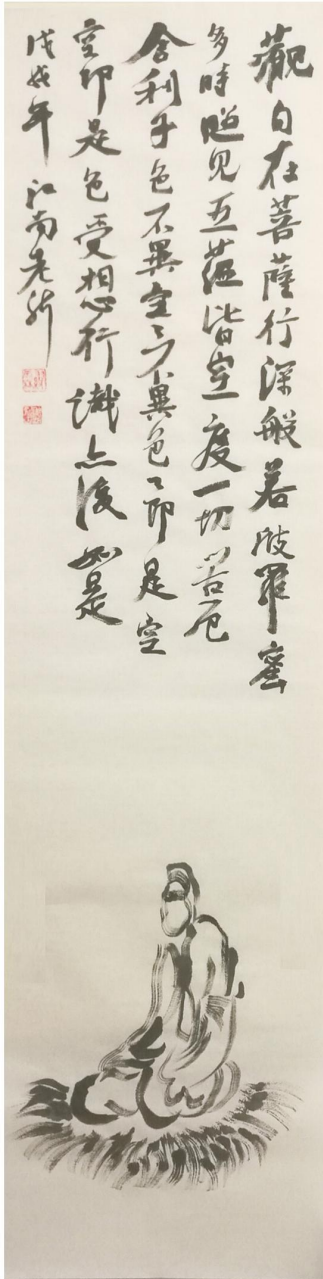 觀自在菩薩行深般若波羅蜜
多時照見五蘊皆空度一切苦厄
舍利子色不異空〻不異色〻即是空
空即是色受想行識亦復如是
戊戌年 江南老